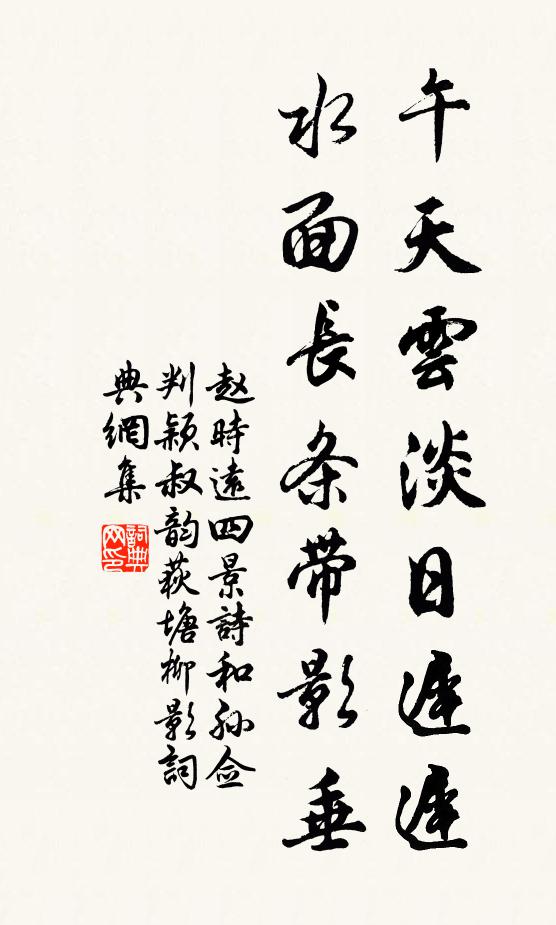 午天雲淡日遲遲
水面長条帶影垂
赵時遠四景詩和孫僉
判穎叔韵荻塘柳影詞
典網集
詞典
网印